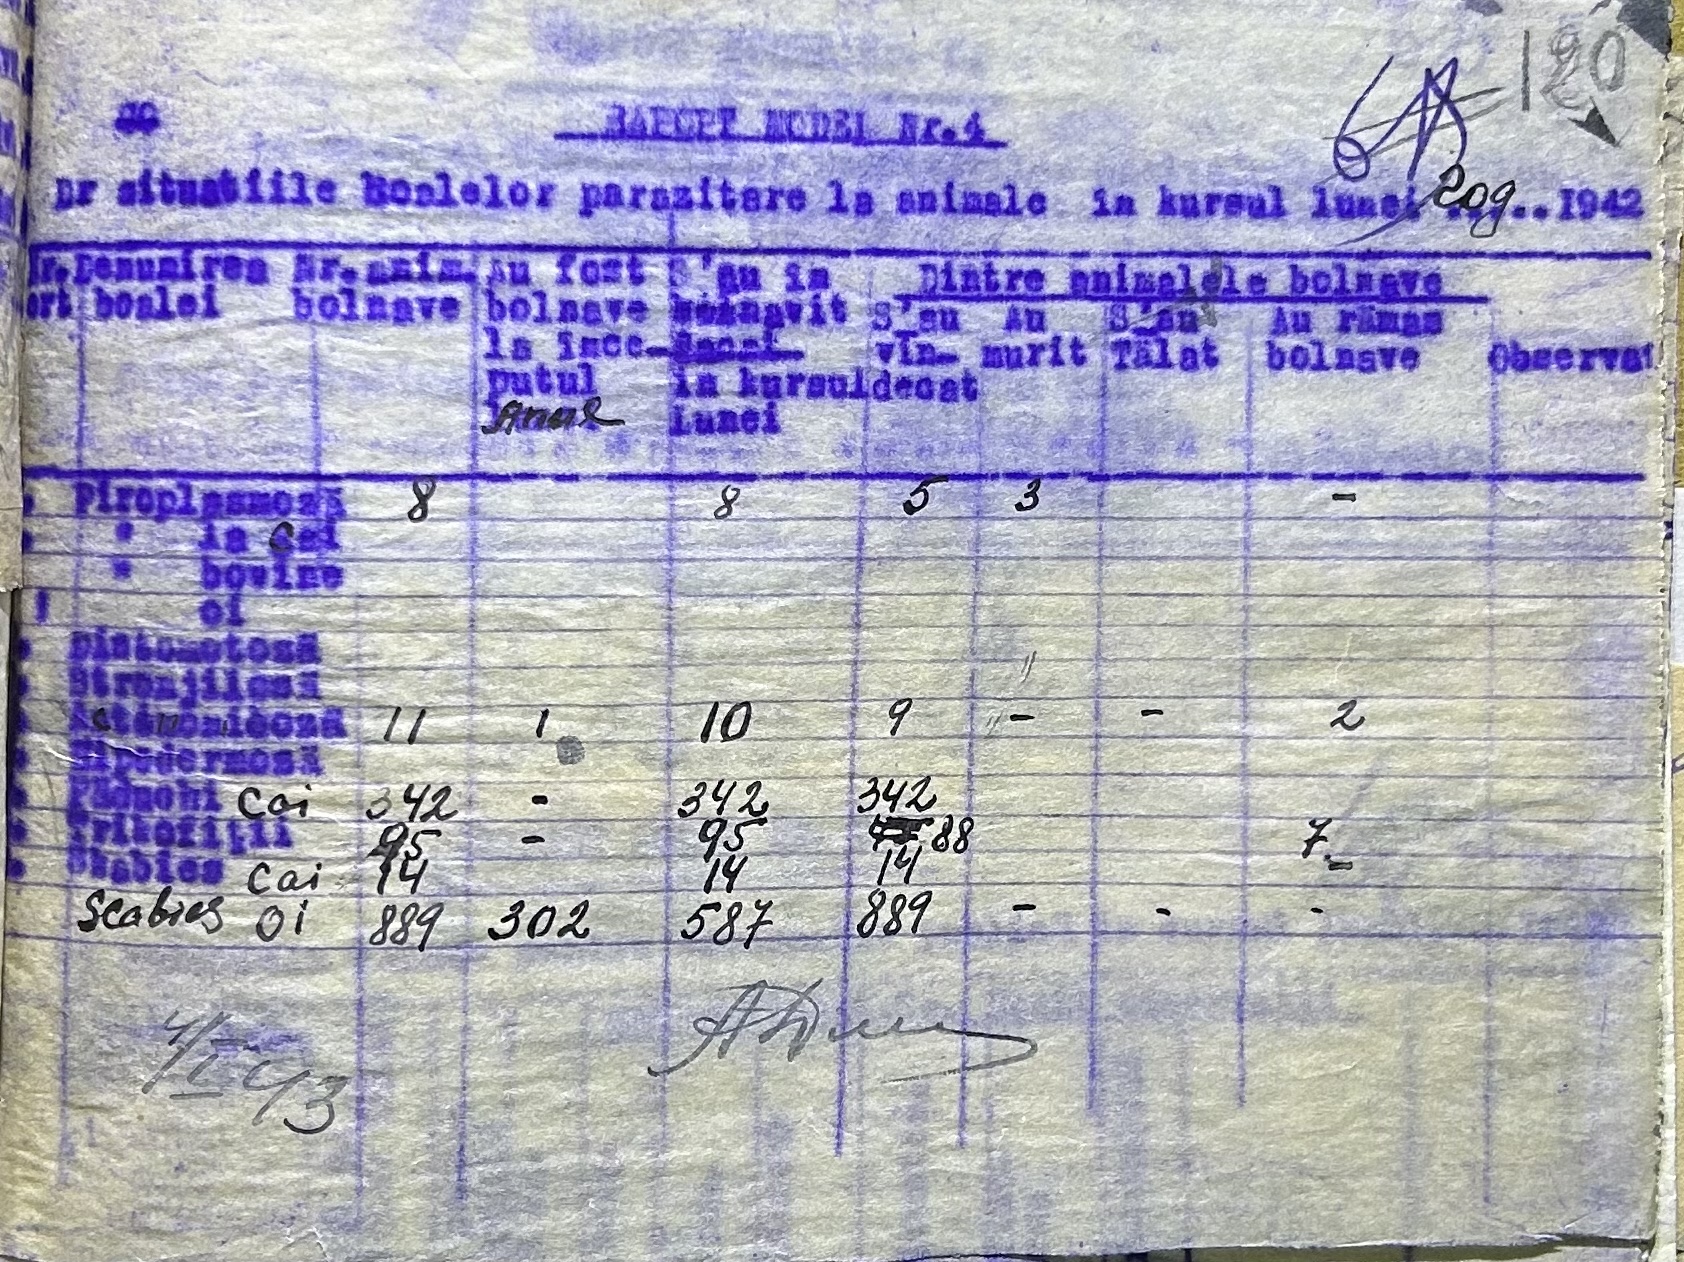 120
RAPORT MODEL Nr.4
pr situatiile Boalelor parazitare la animale in kursul lunei ..... 1942
Nr. Denumirea Nr. anim. Au fost S'au in Dintre animalele bolnave
ort boalei bolnave bolnave bolnavit S'au Au S'au Au rămas
la ince- vin- murit Tălat bolnave Observat
putul in kursul decat
Anul Lunei
Piroplasmosă 8 8 5 3 -
" la Cai
" bovine
" oi
Distomatosă
Stranjilosă
11 1 10 9 - - 2
Hipodermosă
Cai 342 - 342 342
Trikofiții 95 - 95 88 7
Skabies Cai 14 14 14 -
Scabies Oi 889 302 587 889 - - -
4/I 43